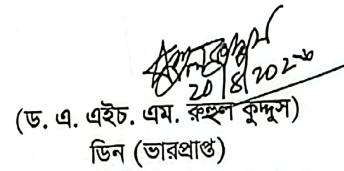 20/8/2020
(ড. এ. এইচ. এম. রুহুল কুদ্দুস)
ডিন (ভারপ্রাপ্ত)